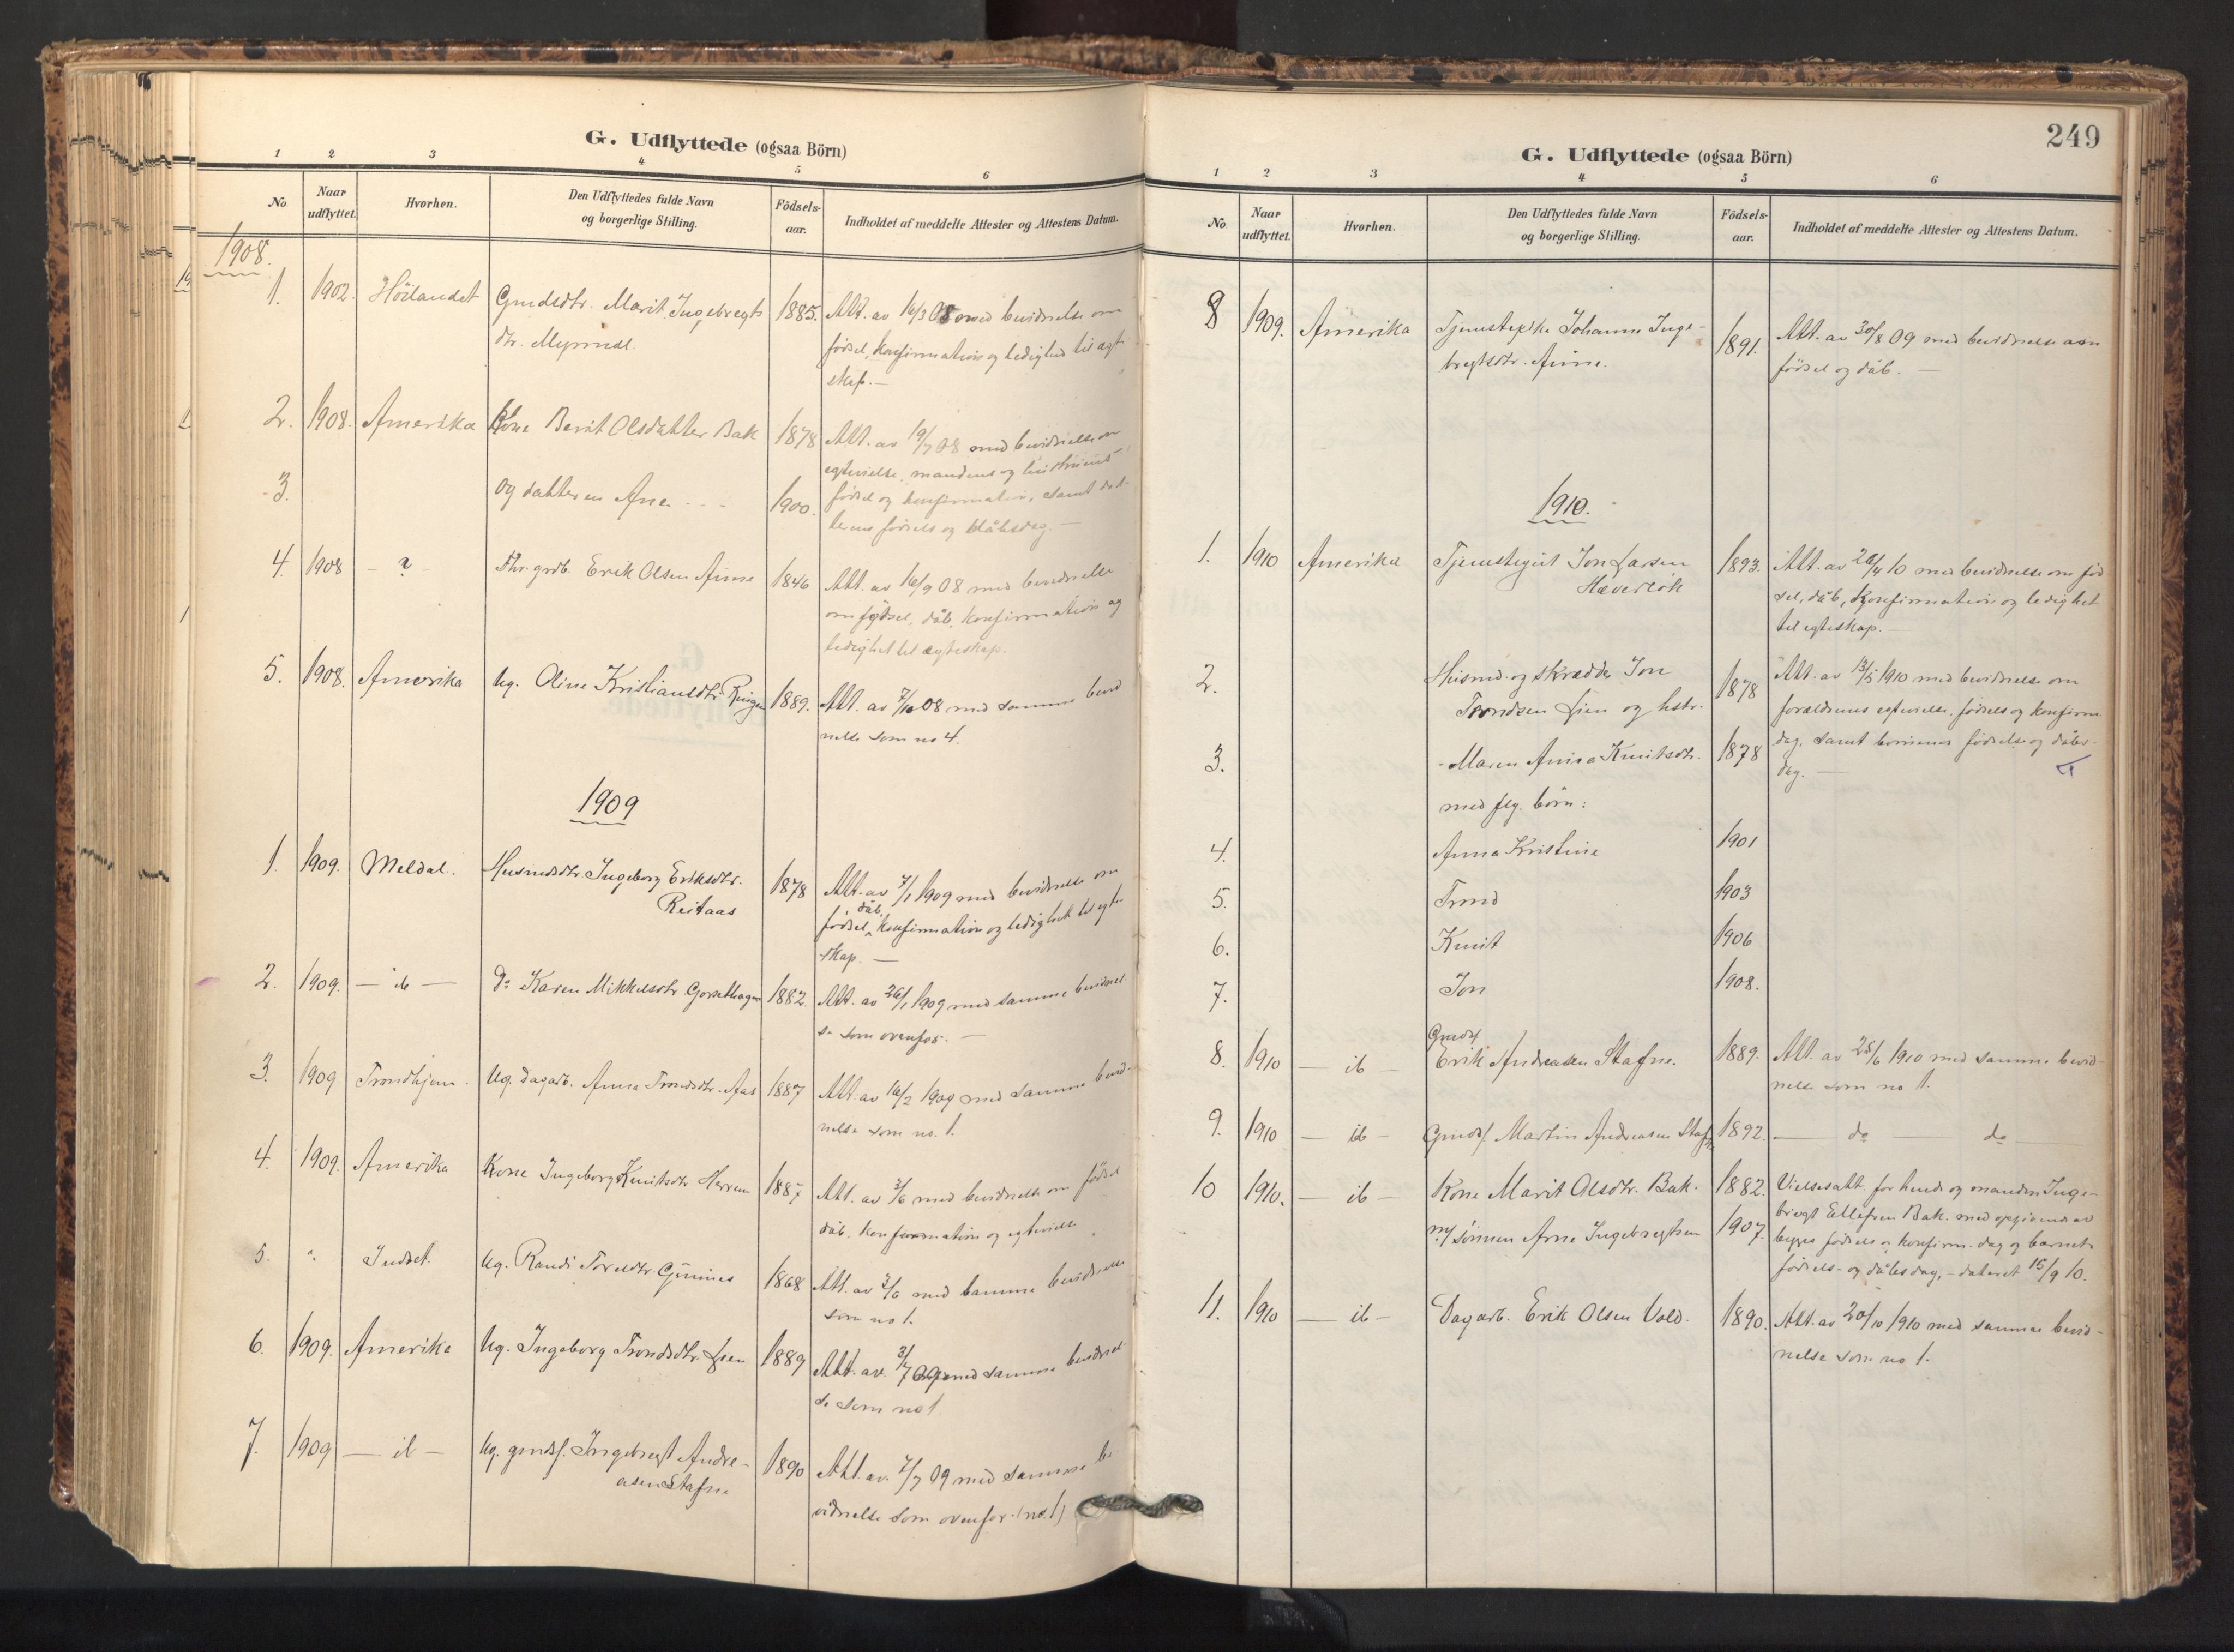 G. Udflyttede (ogsaa Börn)
1 2 3 4 5 6
No
Naar udflyttet.
Hvorhen.
Den Udflyttedes fulde Navn
og borgerlige Stilling.
Födsels-
aar.
Indholdet af meddelte Attester og Attestens Datum.
1908.
1. 1902. Höilandet Gmdsdtr. Marit Ingebregts 1885. Att. av 16/3 08 med bevidnelse om
dtr. fødsel, konfirmation og ledighed til ægte
skap. —
2. 1908. Amerika Kone Berit Olsdatter Bak 1878 Att. av 19/7 08 med bevidnelse om
egtevielse, mandens og hustruens
3. og datteren Ane 1900. fødsel og konfirmation, samt dat-
terens fødsels og dåbsdag. —
4. 1908 - ? - Erik Olsen Aune 1846 Att. av 16/9 08 med bevidnelse
om fødsel, dåb, konfirmation og
ledighet til ægteskap.
5. 1908. Amerika Ug. Oline Kristiansdtr. 1889. Att. av 7/10 08 med samme bevid
nelse som no 4.
1909
1. 1909. Meldal. Husmdsdtr Ingeborg Eriksdtr. 1878 Att. av 7/1 1909 med bevidnelse om
Reitaas dåb,
fødsel, konfirmation og ledighet til egte
skap. —
2. 1909. — ib — do Karen Mikkelsdtr. 1882. Att. av 26/1 1909 med samme bevidnel
se som ovenfor. —
3. 1909 Trondhjem. Ug. dagarb. Anna Trondsdtr. Aas 1887 Att. av 16/2 1909 med samme bevid-
nelse som no. 1.
4. 1909. Amerika Kone Ingeborg Knutsdtr Herrem 1887 Att. av 3/6 med bevidnelse om fødsel
dåb, konfirmation og egtevielse
5. " Indset. Ug. Randi Toresdtr. Gunnes 1868 Att. av 3/6 med samme bevidnelse
som no 1.
6. 1909. Amerika Ug. Ingeborg Trondsdtr. Lien 1889 Att. av 3/7 09 med samme bevidnel
se som no 1
7. 1909 — ib — Ug. gmds. Ingebregt Andre- 1890 Att. av. 7/7 09 med samme be
asen Stafne vidnelse som ovenfor. (no. 1)
249
G. Udflyttede (ogsaa Börn)
1 2 3 4 5 6
No
Naar udflyttet.
Hvorhen.
Den Udflyttedes fulde Navn
og borgerlige Stilling.
Födsels-
aar.
Indholdet af meddelte Attester og Attestens Datum.
8 1909. Amerika Tjenestepike Johanne Inge- 1891. Att. av 30/8 09 med bevidnelse om
bregtsdtr. Aune. fødsel og dåb. —
1910.
1. 1910 Amerika Tjenestegut Jon Larsen 1893. Att. av 26/4 10 med bevidnelse om fød
Hæverløk sel, dåb, konfirmation og ledighet
til egteskap. —
2. Husmd. og skrædder Jon 1878 Att. av 13/5 1910 med bevidnelse om
Trondsen Lien og hstr. forældrenes egtevielse, fødsels og konfirm.
3. Maren Anna Knutsdtr. 1878 dag, samt børnenes fødsels og dåbs-
dag. —
med flg. børn:
4. Anna Kristine 1901
5. Trond 1903
6. Knut 1906
7. Jon 1908.
Gmds
8. 1910 — ib — Erik Andreasen Stafne. 1889. Att. av 25/6 1910 med samme bevid-
nelse som no 1.
9. 1910 — ib — Gmds. Martin Andreasen Stafne 1892. — do — do —
10 1910. — ib — Kone Marit Olsdtr. Bak. 1882. Vielsesatt. for hende og manden Inge-
brigt Ellefsen Bak. med opgivende av
m/ sönnen Arne Ingebregtsen 1907. begges fødsels og konfirm. dag og barnets
fødsels- og dåbsdag, - dateret 15/9 10.
11. 1910 — ib — Dagarb. Erik Olsen Vold. 1890. Att. av 20/10 1910 med samme bevid-
nelse som no 1.